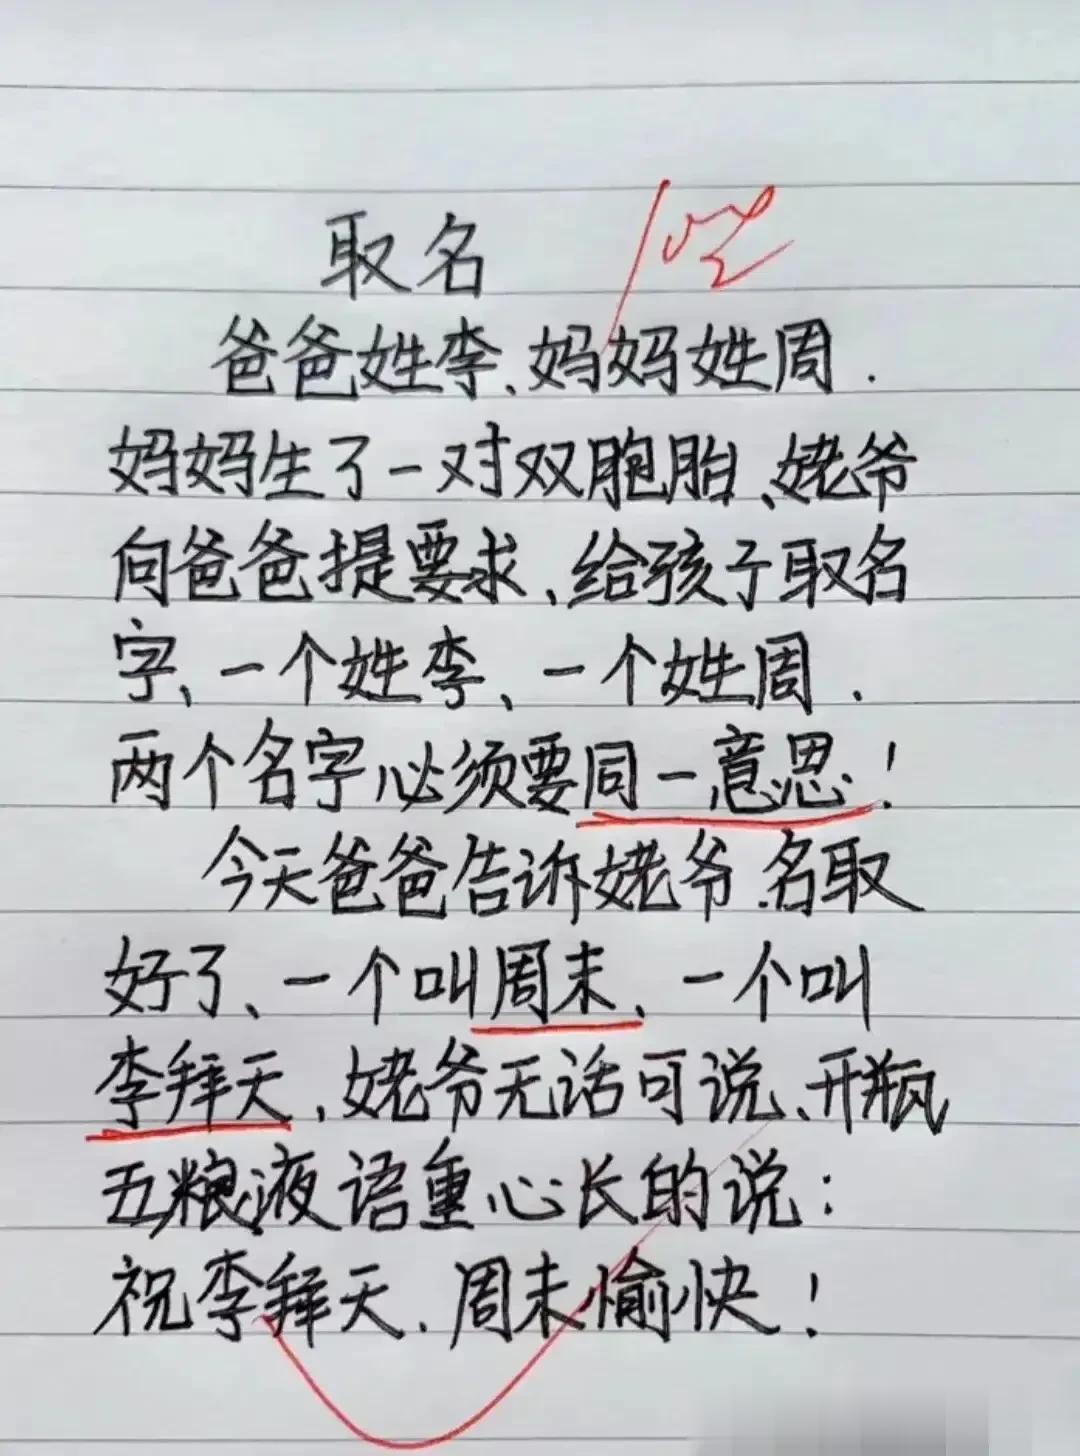 取名
爸爸姓李、妈妈姓周.
妈妈生了一对双胞胎、姥爷
向爸爸提要求、给孩子取名
字、一个姓李、一个姓周.
两个名字必须要同一意思!
今天爸爸告诉姥爷.名取
好了、一个叫周末、一个叫
李拜天、姥爷无话可说、开瓶
五粮液语重心长的说:
祝李拜天.周末愉快!